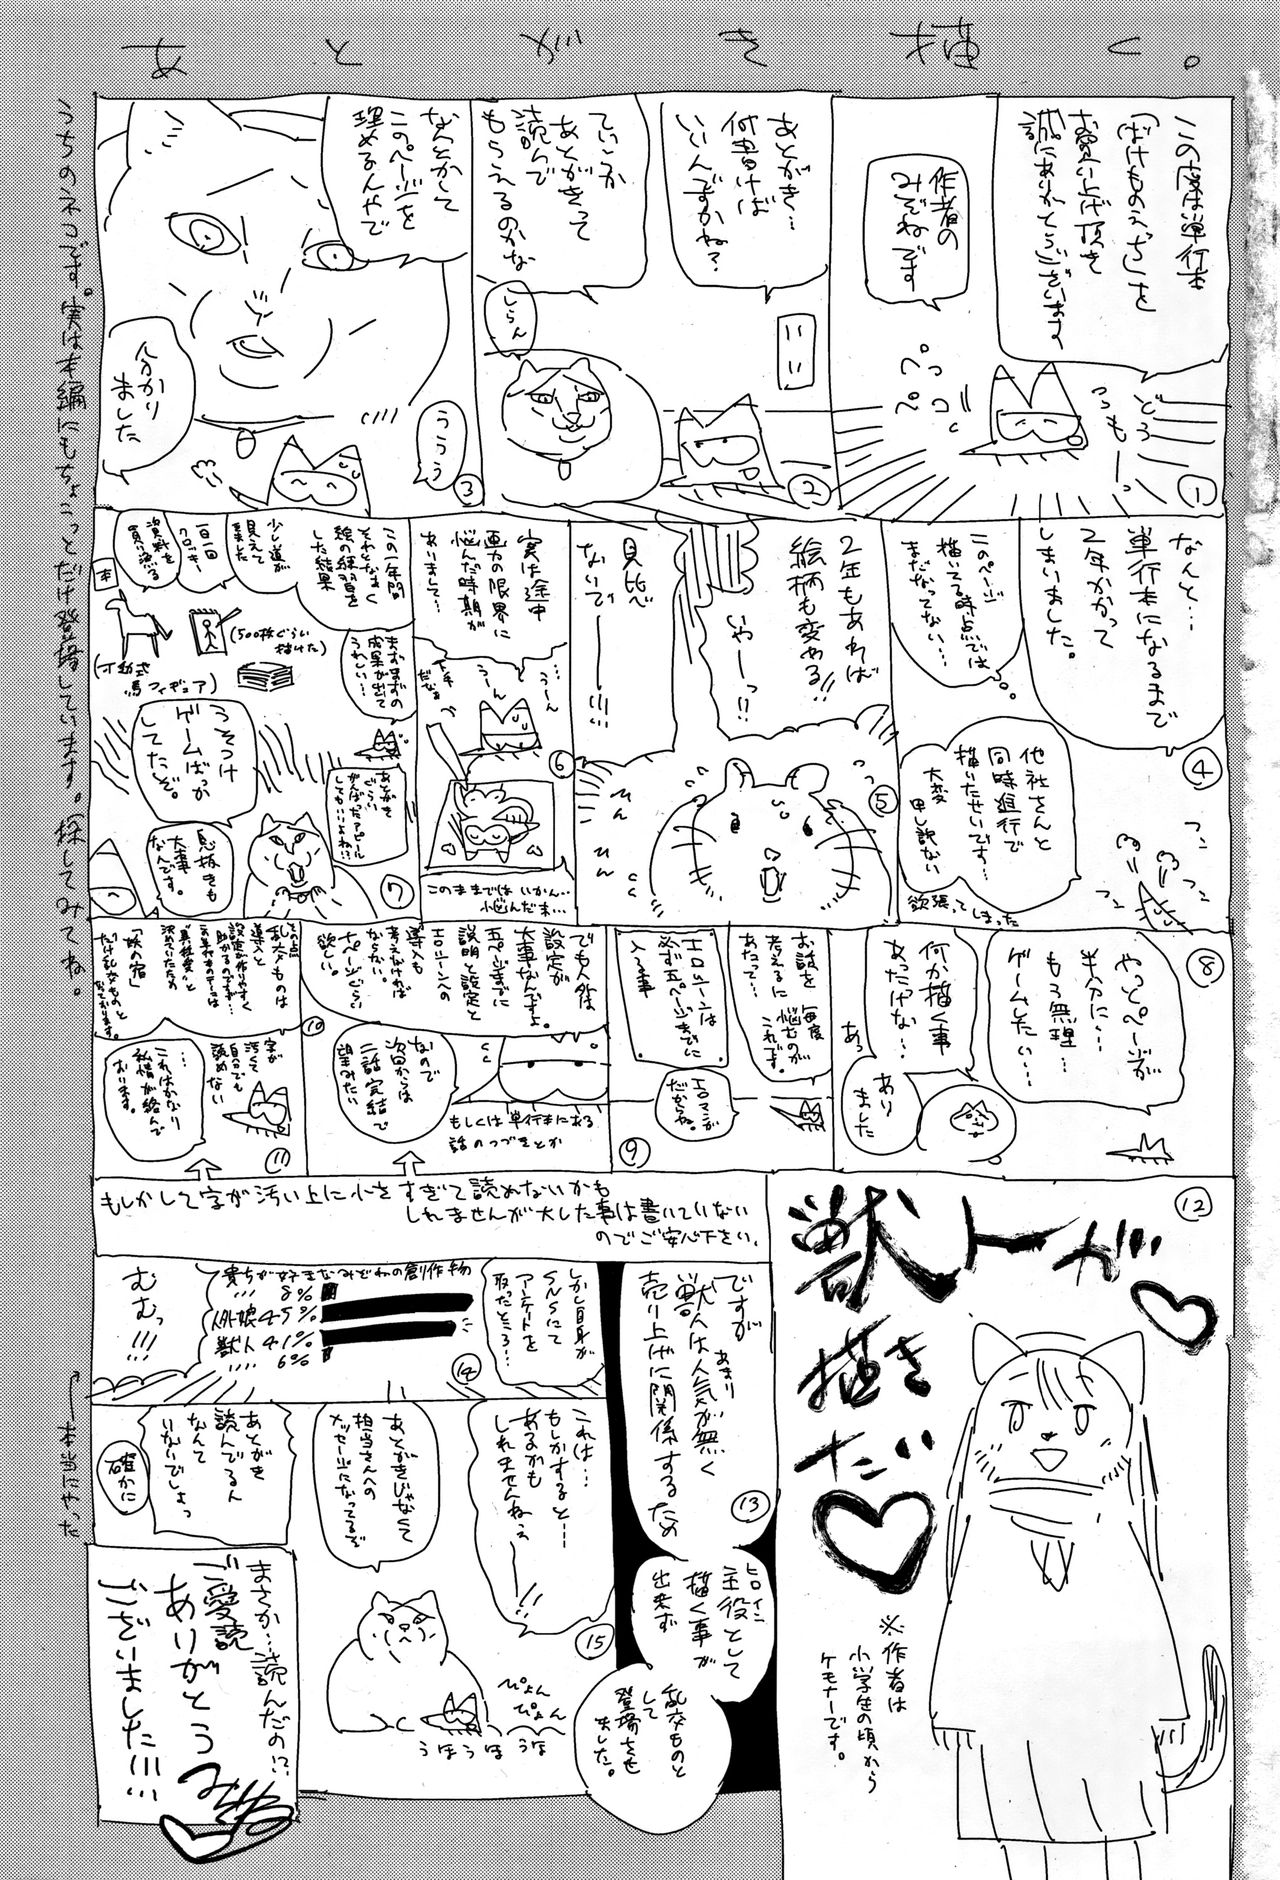 あとがき描く。
うちのネコです。実は本編にもちょこっとだけ登場しています。探してみてね。
この度単行本
「ばけものえっち」を
お買い上げ頂き
誠にありがとうございます
作者の
みぞねです
どうも
ペコ
①
あとがき…
何書けば
いいんですかね?
ていうか
あとがきって
読んで
もらえるのかな
しらん
②
なんとかして
このページを
埋めるんやで
ううう
分かり
ました
③
なんと…
単行本になるまで
2年かかって
しまいました。
このページ
描いてる時点では
まだなってない…
他社さんと
同時進行で
描いたせいです…
大変
申し訳ない
欲張ってしまった
④
2年もあれば
絵柄も変わる!!
いやーっ!!
見比べ
ないでー!!!
⑤
実は途中
画力の限界に
悩んだ時期が
ありまして…
うーん
うーん
⑥
このままではいかん…
この一年間
それとなく
絵の練習を
した結果
少し道が
見えて
きました
一日一回
クロッキー
資料を
買い漁る
本
(500枚ぐらい
描けた)
(可動式
馬フィギュア)
まずまずの
成果が出て
うれしい…
あとがき
ぐらい
がんばったアピール
してもいいよね!?
うそつけ
ゲームばっか
してたぞ。
息抜きも
大事
なんです。
⑦
やっとページが
半分に…
もう無理…
ゲームしたい…
何か描く事
あったかな…
あっ
あり
ました
⑧
お話を
考えるに
あたって…
毎度
悩むのが
これです。
エロシーンは
必ず五ページまでに
入る事
エロマンガ
だからね。
⑨
でも人外は
設定が
大事なんですよ。
五ページまでに
説明と設定と
エロシーンの
導入も
考えなければ
ならない。
十ページぐらい
欲しい。
なので
次回からは
二話完結で
望みたい
もしくは単行本にある
話のつづきとか
⑩
その点
乱交ものは
導入と
設定が作りやすく
助かるのですが…
この単行本のテーマは
「異種愛」と
決めていたため
「妖の宿」
だけ乱交ものと
なっております。
字が
汚くて
自分でも
読めない
…
これはかなり
私情が絡んで
おります。
⑪
もしかして字が汚い上に小さすぎて読めないかも
しれませんが大した事は書いていない
のでご安心下さい。
⑫
獣トーが
描きたい
※作者は
小学生の頃から
ケモナーです。
ですが
獣人はあまり人気が無く
売り上げに関係するため
⑬
ヒロイン
主役として
描く事が
出来ず
乱交ものと
して
登場させ
ました。
しかし自身が
SNSにて
アンケートを
取ったところ…
貴方が好きなみぞねの創作物
…8%
人外娘45%
獣人41%
…6%
むむっ!!!
⑭
→本当にやった
これは…
もしかすると…
あるかも
しれませんねぇ
ー!!
あとがきじゃなくて
担当さんへの
メッセージになってるぞ
ぴょん
ぴょん
うほうほ うほ
⑮
あとがき
読んでるん
なんて
いないでしょっ
確かに
まさか…読んだの!?
ご愛読
ありがとう
ございました!!!
みぞね